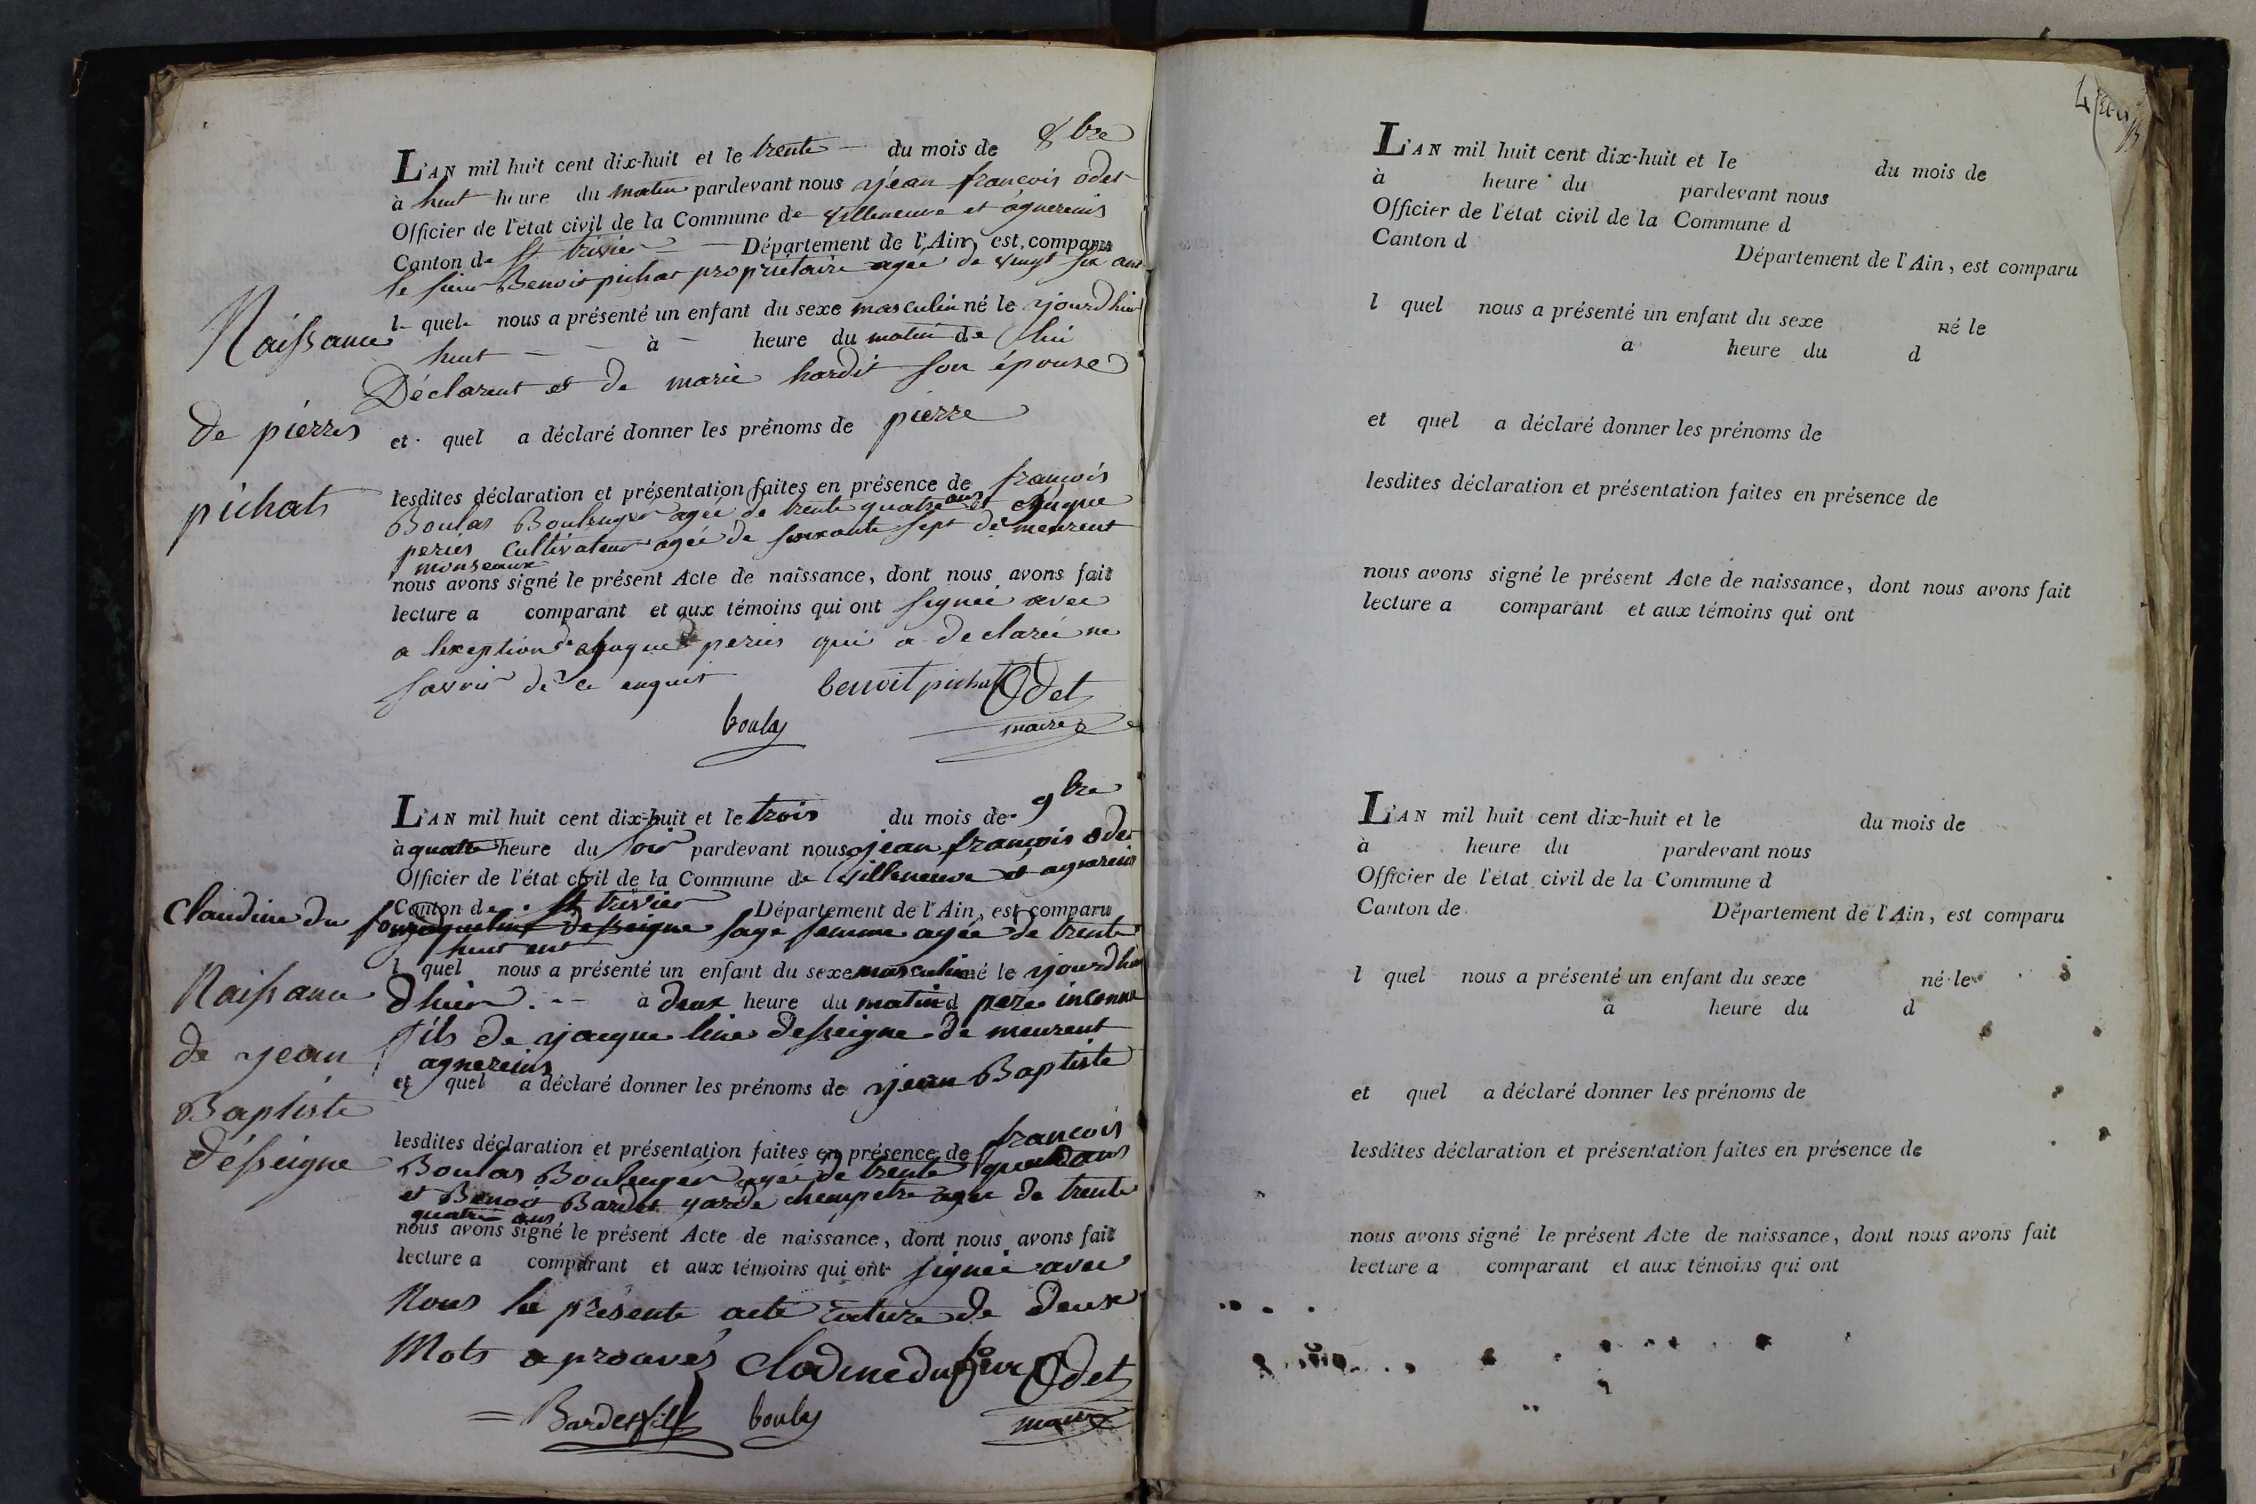 L'AN mil huit cent dix-huit et le trente du mois de 8bre
à huit heure du matin pardevant nous jean françois odet
Officier de l'état civil de la Commune de villeneuve et agnereins
Canton de st trivier Département de l'Ain, est comparu
le sieur Benoit pichat propriétaire agée de vingt six ans
Naissance
de pierre
pichat
l quel nous a présenté un enfant du sexe masculin né le jourdhui
huit à heure du matin de lui
Déclarent et de marie hardit son épouse
et quel a déclaré donner les prénoms de pierre
lesdites déclaration et présentation faites en présence de françois
Boulas Boulenger agée de trente quatre ans et
periés cultivateur agée de soixante sept demeurent
monseaux
nous avons signé le présent Acte de naissance, dont nous avons fait
lecture a comparant et aux témoins qui ont signée avec
a lexeption de periés qui a declarée ne
savoir de ce enquit
benoit pichat Odet
boulas maire
L'AN mil huit cent dix-huit et le trois du mois de 9bre
à quatre heure du soir pardevant nous jean françois odet
Officier de l'état civil de la Commune de villeneuve et agnereins
Canton de st trivier Département de l'Ain, est comparu
claudine du four jaqueline desseigne sage femme agée de trente
huit ent
l quel nous a présenté un enfant du sexe masculin né le jourdhui
Naissance
de jean
Baptiste
désseigne
dhier à deux heure du matin d pere inconnu
fils de jacque line desseigne demeurent
agnereins
et quel a déclaré donner les prénoms de jean Baptiste
lesdites déclaration et présentation faites en présence de françois
Boulas Boulenger agée de trente quatre ans
et Benoit Bardet garde chempetre agee de trente
quatre ans
nous avons signé le présent Acte de naissance, dont nous avons fait
lecture a comparant et aux témoins qui ont signée avec
Nous le présente acte rature de deux
Mots aprouvés clodine dufour Odet
Bardet fils boulas maire
L'AN mil huit cent dix-huit et le du mois de
à heure du pardevant nous
Officier de l'état civil de la Commune d
Canton d Département de l'Ain, est comparu
l quel nous a présenté un enfant du sexe né le
a heure du d
et quel a déclaré donner les prénoms de
lesdites déclaration et présentation faites en présence de
nous avons signé le présent Acte de naissance, dont nous avons fait
lecture a comparant et aux témoins qui ont
L'AN mil huit cent dix-huit et le du mois de
à heure du pardevant nous
Officier de l'état civil de la Commune d
Canton de Département de l'Ain, est comparu
l quel nous a présenté un enfant du sexe né le
à heure du d
et quel a déclaré donner les prénoms de
lesdites déclaration et présentation faites en présence de
nous avons signé le présent Acte de naissance, dont nous avons fait
lecture a comparant et aux témoins qui ont